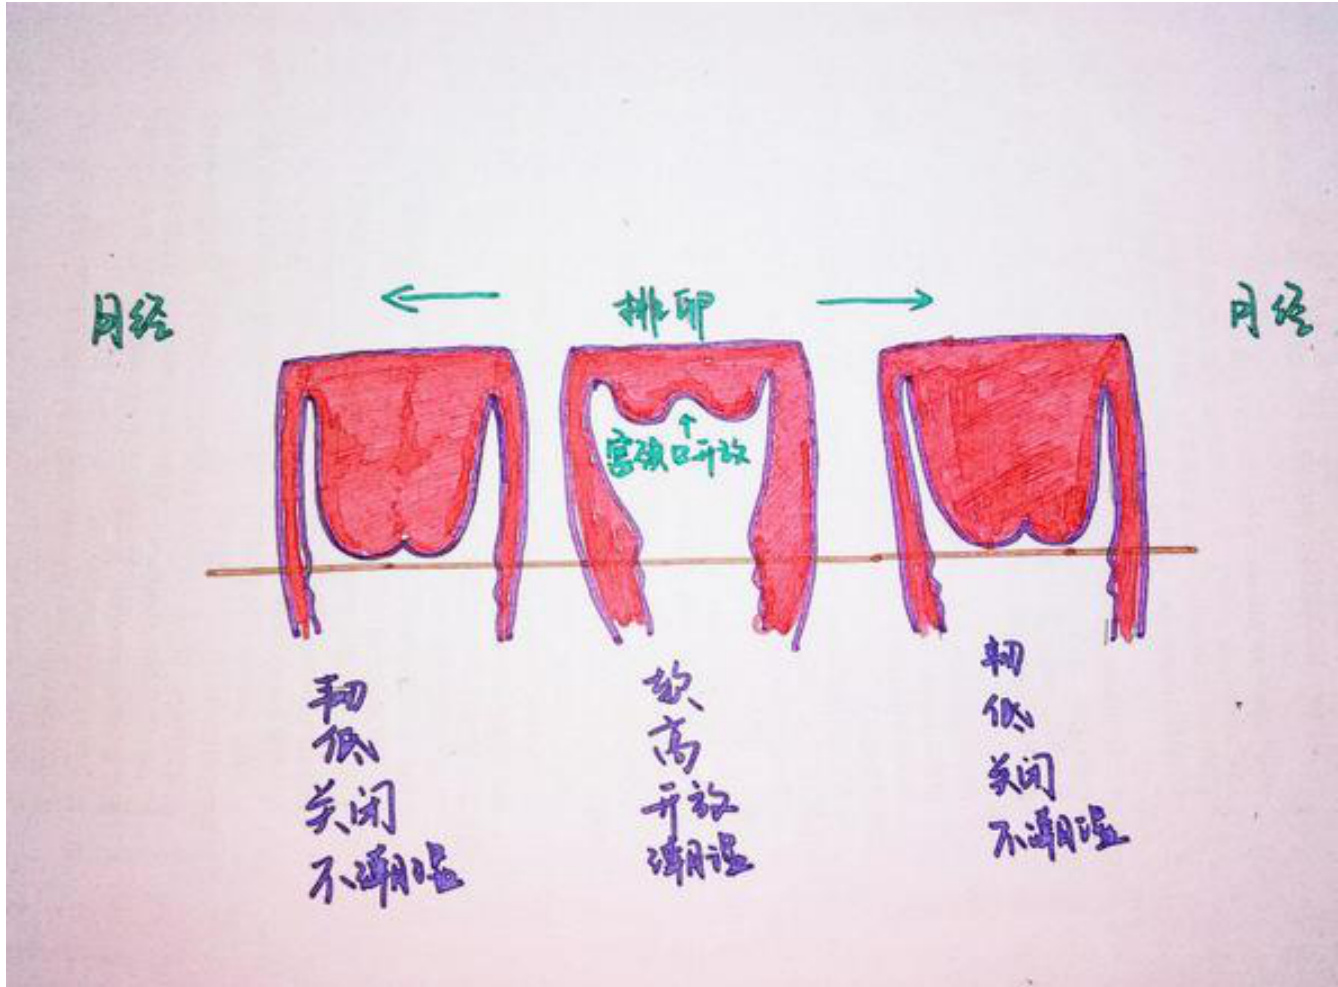 月经
排卵
月经
宫颈口开放
韧
低
关闭
不潮湿
软
高
开放
潮湿
韧
低
关闭
不潮湿